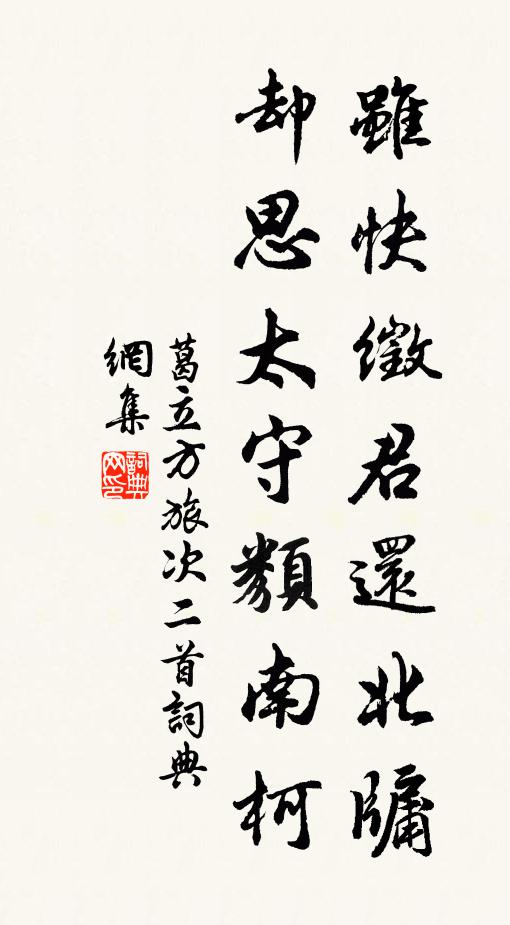 雖快徵君還北牖
却思太守類南柯
葛立方旅次二首詞典
網集
詞典網印